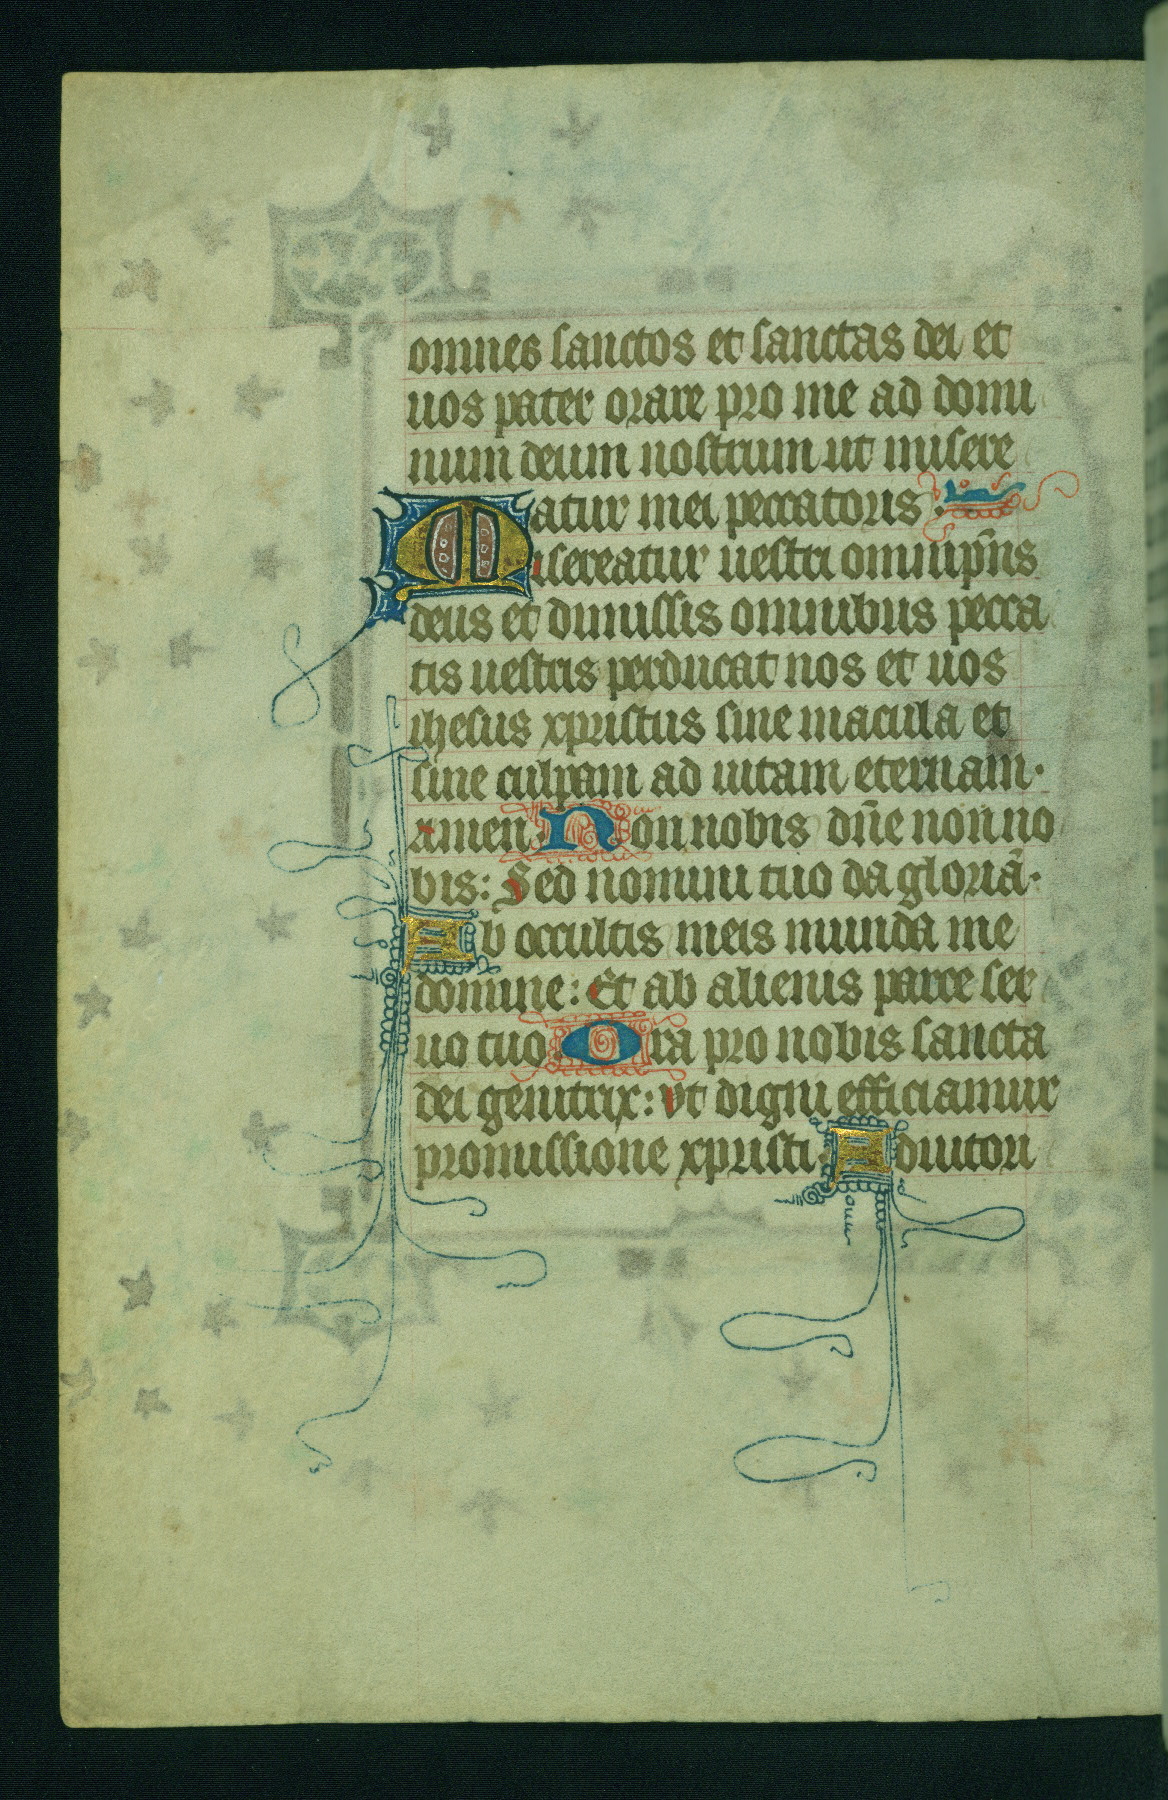 omnes sanctos et sanctas dei et
uos pater orare pro me ad domi
num deum nostrum ut misere
atur mei peccatoris.
Misereatur uestri omnip̄ns
deus et dimissis omnibus pecca
tis uestris perducat nos et uos
ihesus xpristus sine macula et
sine culpam ad uitam eternam.
amen. Non nobis dn̄e non no
bis: Sed nomini tuo da gloriā.
Ab occultis meis munda me
domine: Et ab alienis parce ser
uo tuo. Ora pro nobis sancta
dei genitrix: vt digni efficiamur
promissione xpristi. Adiutori